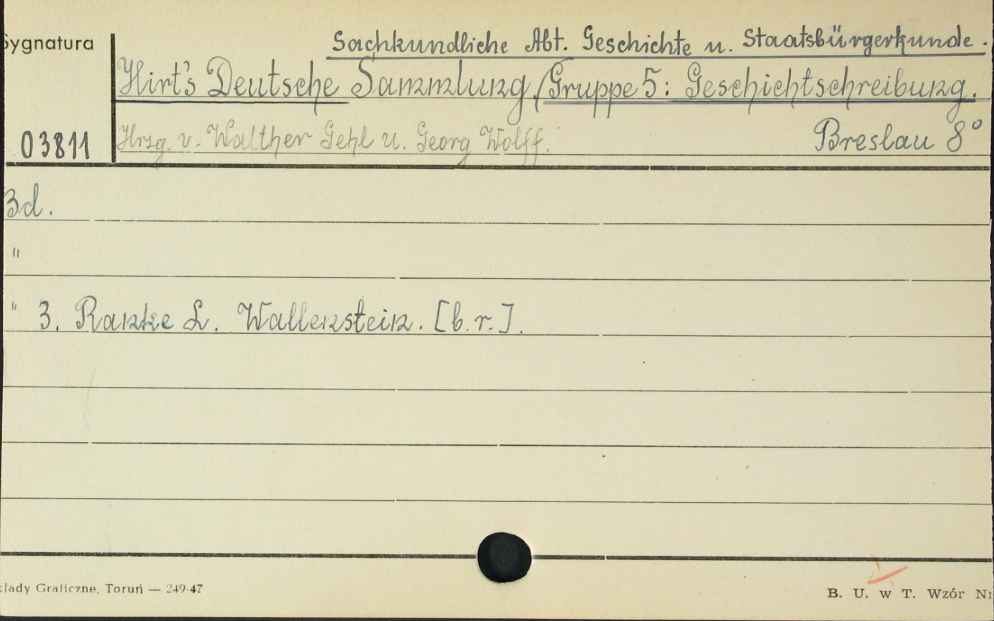 Sygnatura
Sachkundliche Abt. Geschichte u. Staatsbürgerkunde.
Hirt's Deutsche Sammlung, Gruppe 5: Geschichtschreibung.
03811
Hrsg. v. Walther Gehl u. Georg Wolff.
Breslau 8°
Bd.
"
" 3. Ranke L. Wallenstein. [b.r.].
kłady Graficzne, Toruń — 249-47
B. U. w T. Wzór Nr